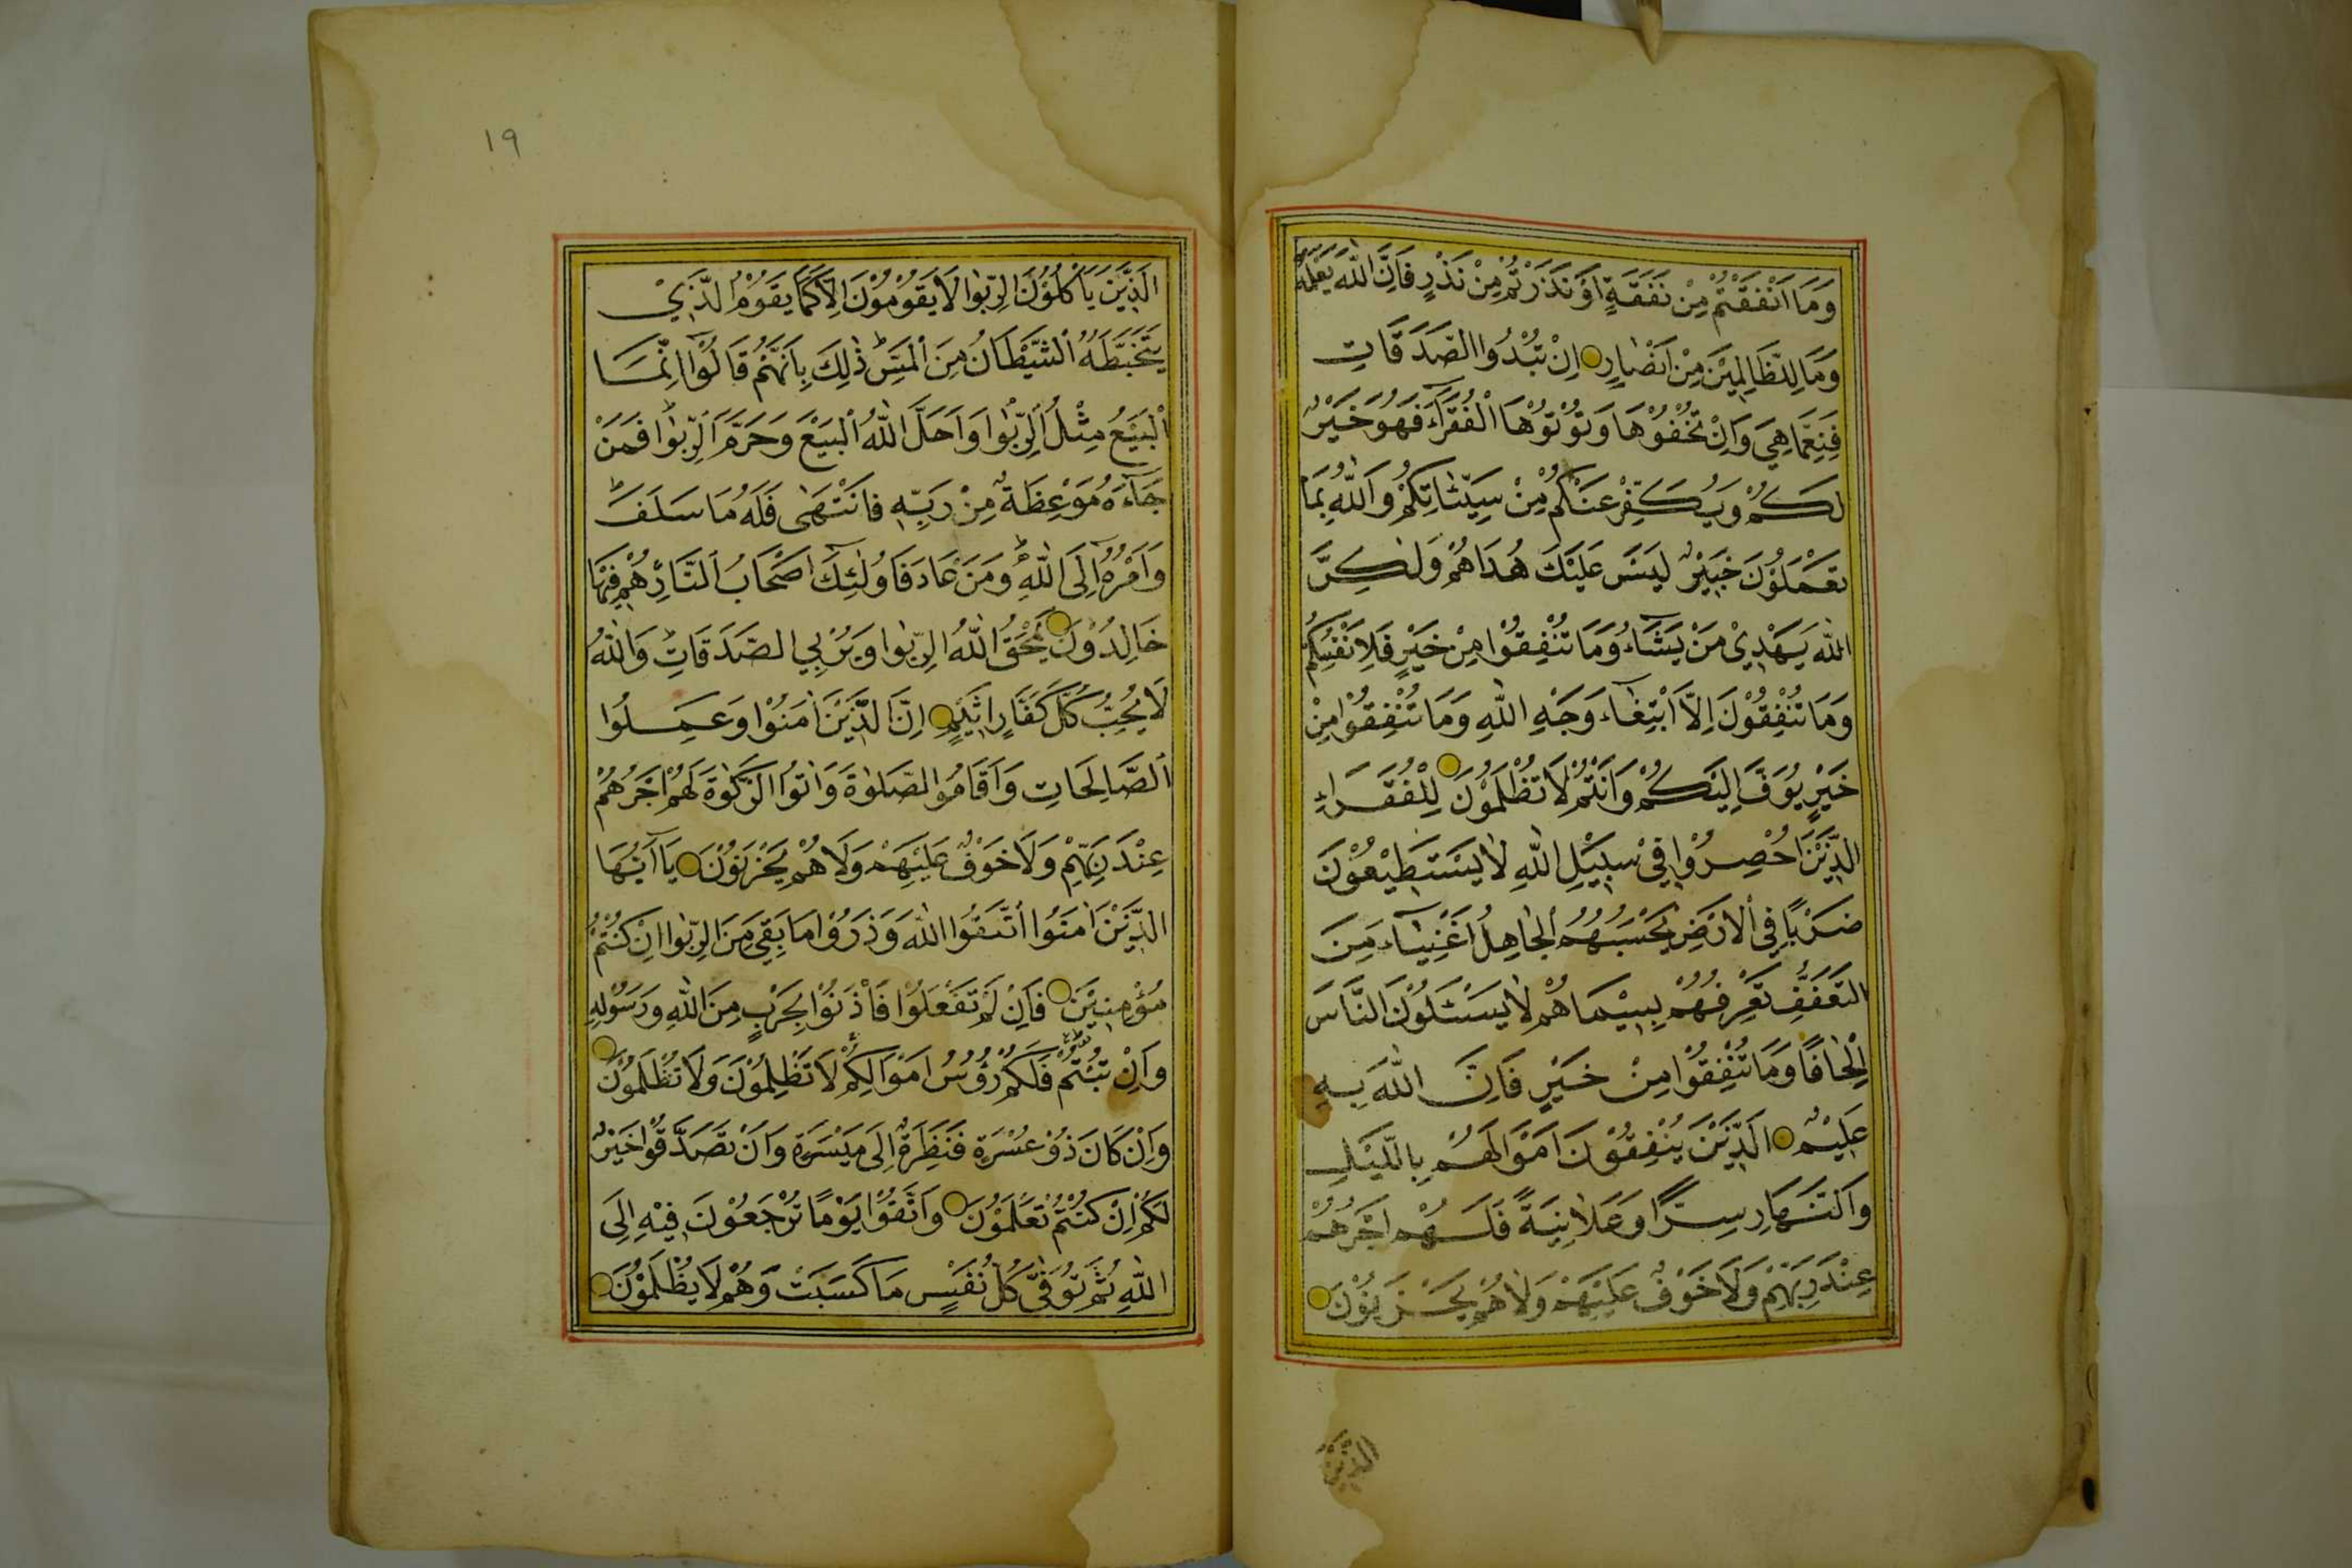 وَمَا اَنْفَقْتُمْ مِنْ نَفَقَةٍ اَوْ نَذَرْتُمْ مِنْ نَذْرٍ فَاِنَّ اللّٰهَ يَعْلَمُهُ
وَمَا لِلظَّالِمِيْنَ مِنْ اَنْصَارٍ اِنْ تُبْدُوا الصَّدَقَاتِ
فَنِعِمَّا هِيَ وَاِنْ تُخْفُوْهَا وَتُؤْتُوْهَا الْفُقَرَآءَ فَهُوَ خَيْرٌ
لَكُمْ وَيُكَفِّرُ عَنْكُمْ مِنْ سَيِّئَاتِكُمْ وَاللّٰهُ بِمَا
تَعْمَلُوْنَ خَبِيْرٌ لَيْسَ عَلَيْكَ هُدَاهُمْ وَلٰكِنَّ
اللّٰهَ يَهْدِيْ مَنْ يَشَآءُ وَمَا تُنْفِقُوْا مِنْ خَيْرٍ فَلِاَنْفُسِكُمْ
وَمَا تُنْفِقُوْنَ اِلَّا ابْتِغَآءَ وَجْهِ اللّٰهِ وَمَا تُنْفِقُوْا مِنْ
خَيْرٍ يُوَفَّ اِلَيْكُمْ وَاَنْتُمْ لَا تُظْلَمُوْنَ لِلْفُقَرَاءِ
الَّذِيْنَ اُحْصِرُوْا فِيْ سَبِيْلِ اللّٰهِ لَا يَسْتَطِيْعُوْنَ
ضَرْبًا فِي الْاَرْضِ يَحْسَبُهُمُ الْجَاهِلُ اَغْنِيَآءَ مِنَ
التَّعَفُّفِ تَعْرِفُهُمْ بِسِيْمَاهُمْ لَا يَسْئَلُوْنَ النَّاسَ
اِلْحَافًا وَمَا تُنْفِقُوْا مِنْ خَيْرٍ فَاِنَّ اللّٰهَ بِهِ
عَلِيْمٌ اَلَّذِيْنَ يُنْفِقُوْنَ اَمْوَالَهُمْ بِالَّيْلِ
وَالنَّهَارِ سِرًّا وَعَلَانِيَةً فَلَهُمْ اَجْرُهُمْ
عِنْدَ رَبِّهِمْ وَلَا خَوْفٌ عَلَيْهِمْ وَلَا هُمْ يَحْزَنُوْنَ
الذين
١٩
اَلَّذِيْنَ يَاْكُلُوْنَ الرِّبٰوا لَا يَقُوْمُوْنَ اِلَّا كَمَا يَقُوْمُ الَّذِيْ
يَتَخَبَّطُهُ الشَّيْطَانُ مِنَ الْمَسِّ ذٰلِكَ بِاَنَّهُمْ قَالُوْا اِنَّمَا
الْبَيْعُ مِثْلُ الرِّبٰوا وَاَحَلَّ اللّٰهُ الْبَيْعَ وَحَرَّمَ الرِّبٰوا فَمَنْ
جَآءَهُ مَوْعِظَةٌ مِنْ رَبِّهِ فَانْتَهٰى فَلَهُ مَا سَلَفَ
وَاَمْرُهُ اِلَى اللّٰهِ وَمَنْ عَادَ فَاُولٰئِكَ اَصْحَابُ النَّارِ هُمْ فِيْهَا
خَالِدُوْنَ يَمْحَقُ اللّٰهُ الرِّبٰوا وَيُرْبِي الصَّدَقَاتِ وَاللّٰهُ
لَا يُحِبُّ كُلَّ كَفَّارٍ اَثِيْمٍ اِنَّ الَّذِيْنَ اٰمَنُوْا وَعَمِلُوا
الصَّالِحَاتِ وَاَقَامُوا الصَّلٰوةَ وَاٰتَوُا الزَّكٰوةَ لَهُمْ اَجْرُهُمْ
عِنْدَ رَبِّهِمْ وَلَا خَوْفٌ عَلَيْهِمْ وَلَا هُمْ يَحْزَنُوْنَ يَآ اَيُّهَا
الَّذِيْنَ اٰمَنُوا اتَّقُوا اللّٰهَ وَذَرُوْا مَا بَقِيَ مِنَ الرِّبٰوا اِنْ كُنْتُمْ
مُؤْمِنِيْنَ فَاِنْ لَمْ تَفْعَلُوْا فَاْذَنُوْا بِحَرْبٍ مِنَ اللّٰهِ وَرَسُوْلِهِ
وَاِنْ تُبْتُمْ فَلَكُمْ رُؤُسُ اَمْوَالِكُمْ لَا تَظْلِمُوْنَ وَلَا تُظْلَمُوْنَ
وَاِنْ كَانَ ذُوْ عُسْرَةٍ فَنَظِرَةٌ اِلَى مَيْسَرَةٍ وَاَنْ تَصَدَّقُوْا خَيْرٌ
لَكُمْ اِنْ كُنْتُمْ تَعْلَمُوْنَ وَاتَّقُوْا يَوْمًا تُرْجَعُوْنَ فِيْهِ اِلَى
اللّٰهِ ثُمَّ تُوَفّٰى كُلُّ نَفْسٍ مَا كَسَبَتْ وَهُمْ لَا يُظْلَمُوْنَ